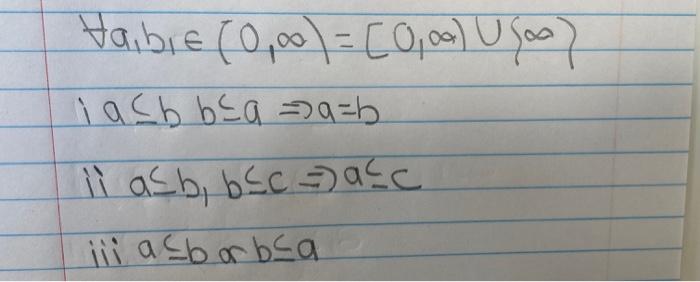 ∀a,b,∈ [0,∞) = [0,∞) ∪ {∞}
i a≤b b≤a ⇒ a=b
ii a≤b, b≤c ⇒ a≤c
iii a≤b or b≤a